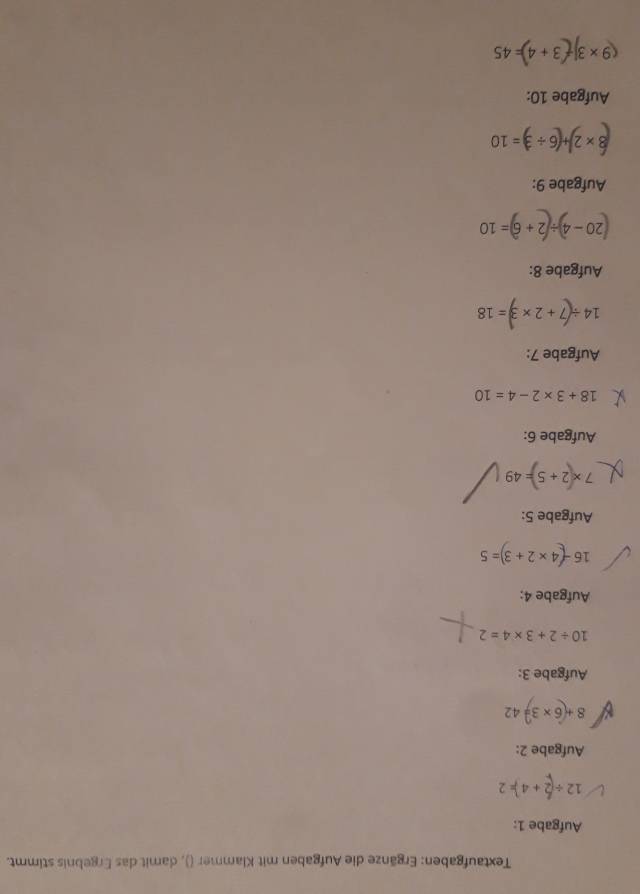 Textaufgaben: Ergänze die Aufgaben mit Klammer (), damit das Ergebnis stimmt.
Aufgabe 1:
12 ÷ (2 + 4) = 2
Aufgabe 2:
8 + (6 × 3) = 42
Aufgabe 3:
10 ÷ 2 + 3 × 4 = 2
Aufgabe 4:
16 - (4 × 2 + 3) = 5
Aufgabe 5:
7 × (2 + 5) = 49
Aufgabe 6:
18 + 3 × 2 - 4 = 10
Aufgabe 7:
14 ÷ (7 + 2 × 3) = 18
Aufgabe 8:
(20 - 4) ÷ (2 + 6) = 10
Aufgabe 9:
(8 × 2) + (6 ÷ 3) = 10
Aufgabe 10:
(9 × 3) - (3 + 4) = 45